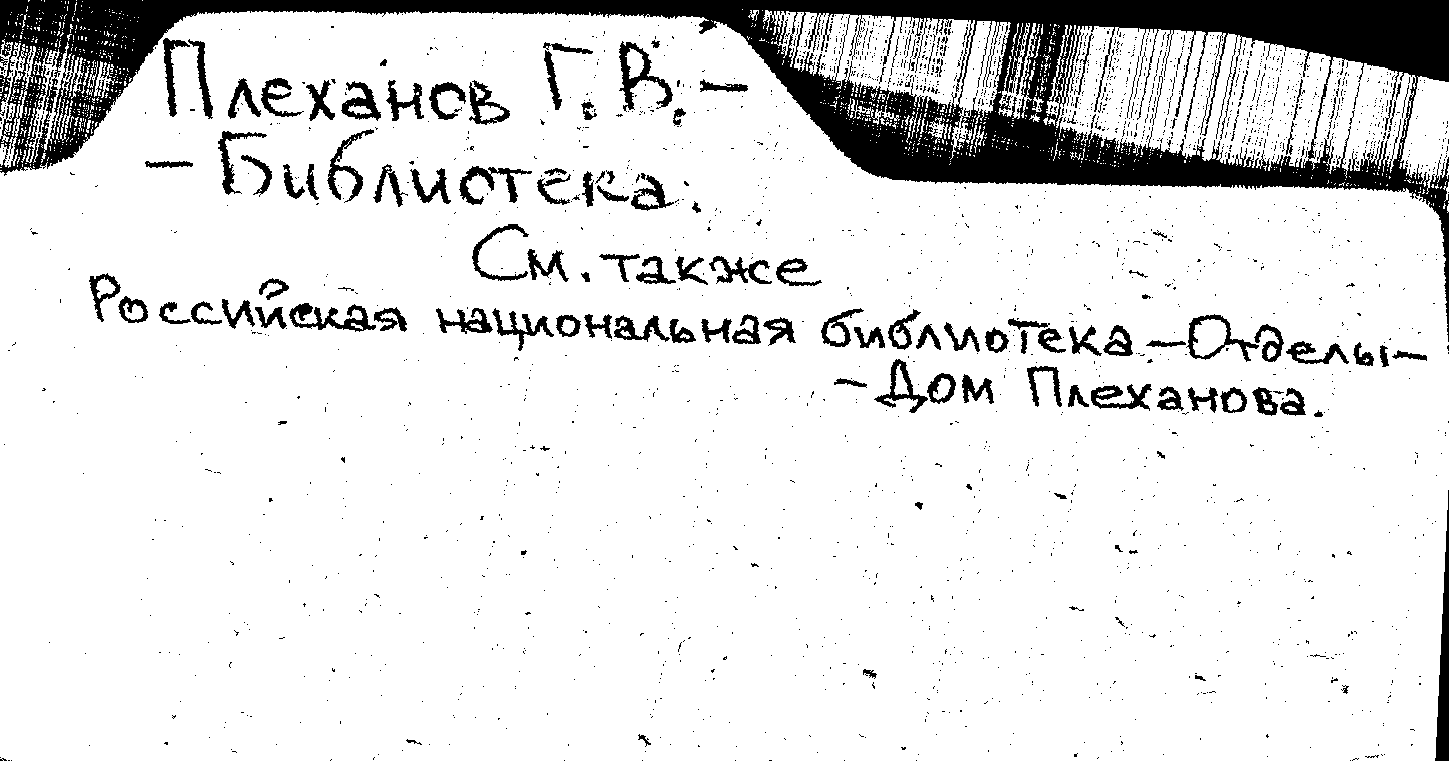 Плеханов Г. В. –
– Библиотека.
См. также
Российская национальная библиотека – Отделы –
– Дом Плеханова.